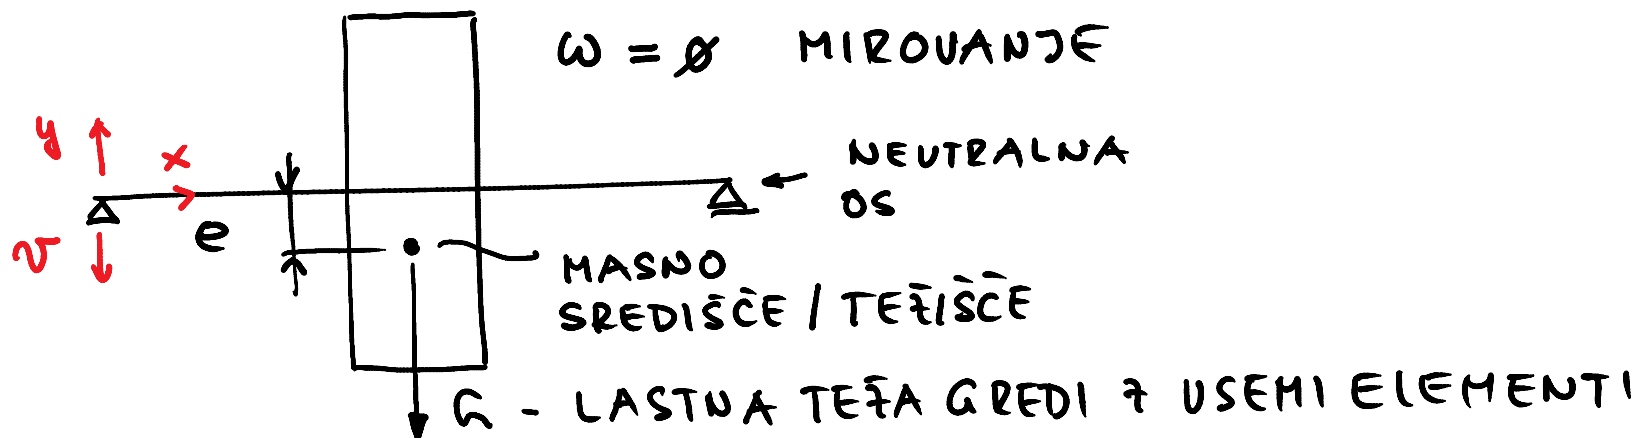 ω = ∅ MIROVANJE
y
x
NEUTRALNA
OS
v
e
MASNO
SREDIŠČE / TEŽIŠČE
G - LASTNA TEŽA GREDI Z VSEMI ELEMENTI